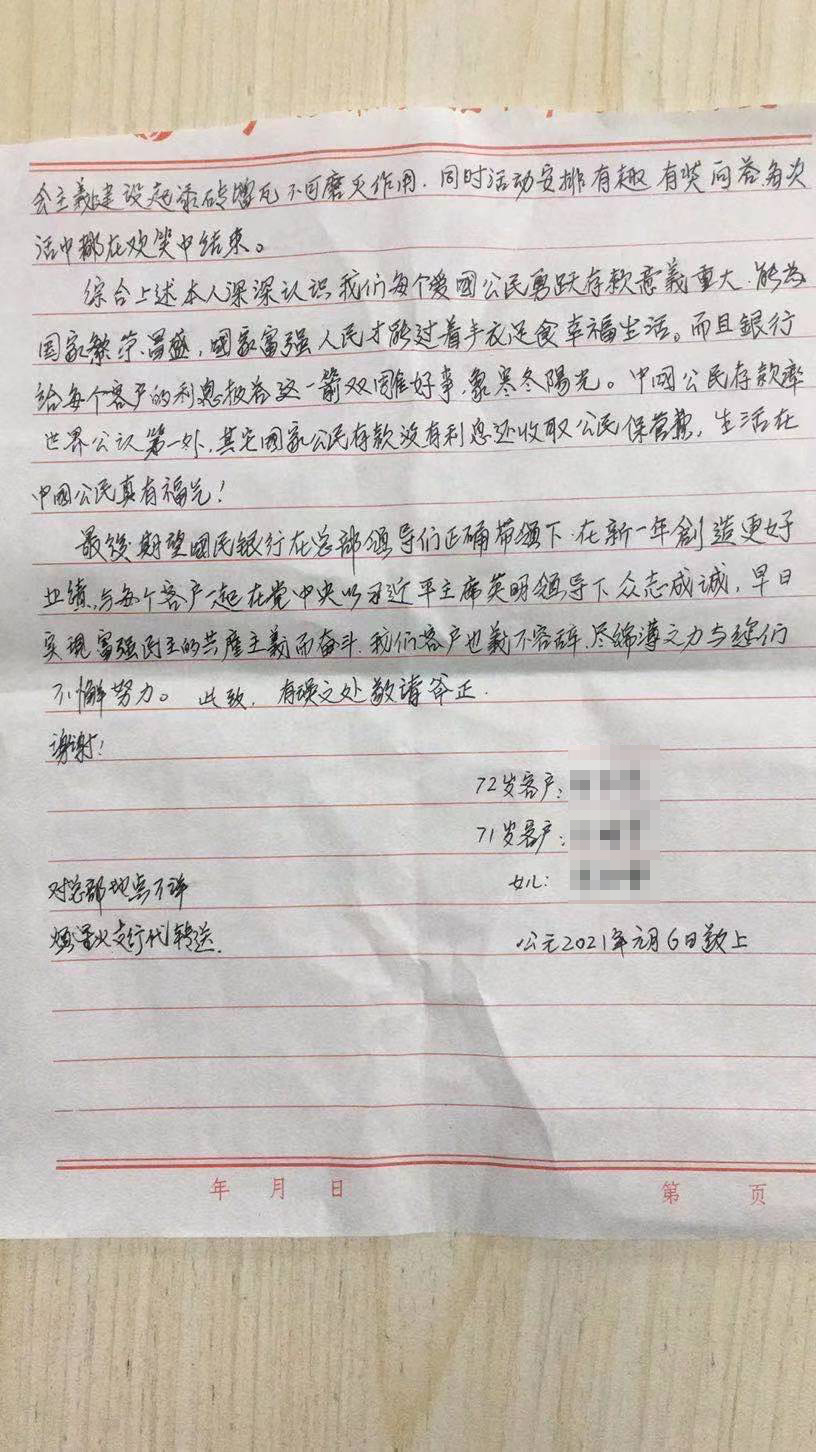 会主義建设起添砖增瓦不可磨灭作用.同时活动安排有趣有奖问答.每次
活中都在欢笑中结束。
综合上述本人深深认识我们每个爱國公民勇跃存款意義重大.能为
国家繁荣.昌盛,國家富强人民才能过着丰衣足食幸福生活。而且銀行
给每个客户的利息报答这一箭双雕好事,象寒冬陽光。中國公民存款率
世界公认第一外.其它國家公民存款没有利息还收取公民保管款,生活在
中國公民真有福气!
最後期望國民银行在总部領导们正确带領下.在新一年創造更好
业績,与每个客户一起在党中央以习近平主席英明領导下众志成诚,早日
实現富强民主的共產主義而奋斗.我们客户也義不容辞.尽绵薄之力与您们
不懈努力。 此致. 有误之处敬请斧正.
谢谢!
72岁客户:
71岁客户:
女儿:
对总部地点不详
支行代转送.
公元2021年元月6日敬上
年 月 日
第 页